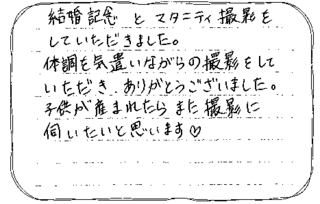 結婚記念 と マタニティ撮影を
していただきました。
体調を気遣いながらの撮影をして
いただき、ありがとうございました。
子供が産まれたら また 撮影に
伺いたいと思います♡